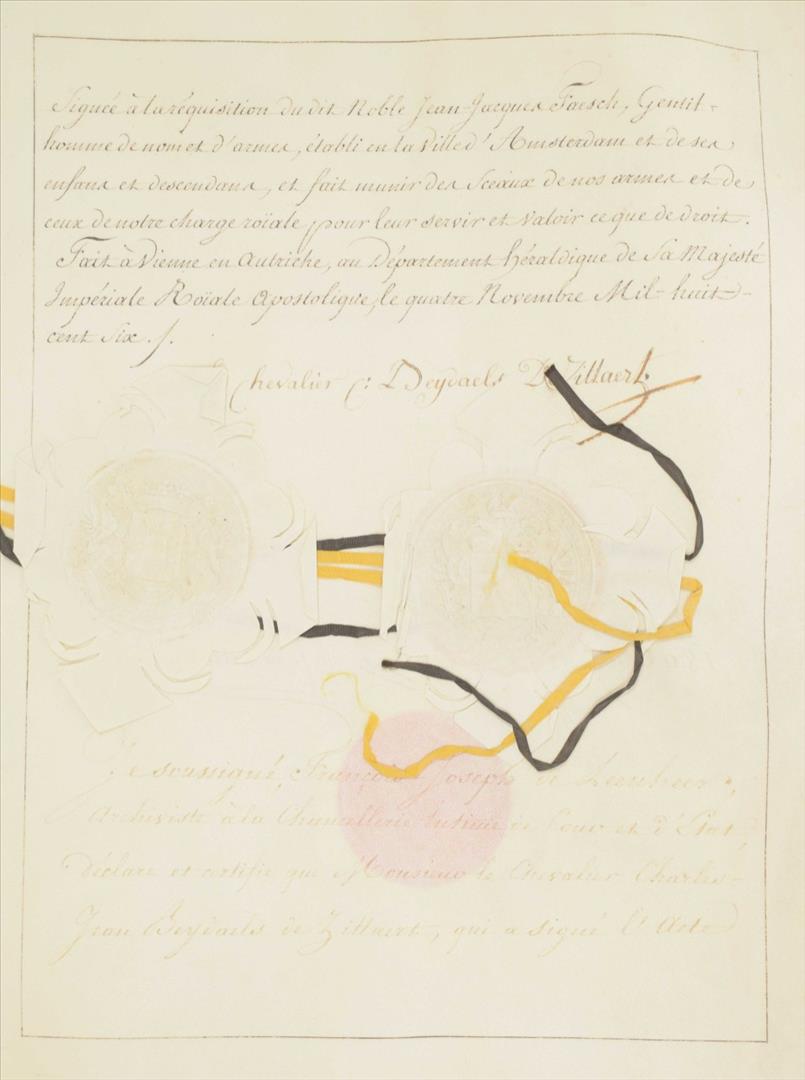 Signée à la réquisition du dit Noble Jean-Jacques Faesch, Gentil-
homme de nom et d'armes, établi en la Ville d'Amsterdam et de ses
enfans et descendans, et fait munir des Sceaux de nos armes et de
ceux de notre charge roïale pour leur servir et valoir ce que de droit.
Fait à Vienne en Autriche, au Département héraldique de Sa Majesté
Impériale Roïale Apostolique, le quatre Novembre Mil-huit-
cent Six ./.
Chevalier C: Beydaels De Zittaert.
Je soussigné, François Joseph de
Archiviste à la Chancellerie Intime de Cour et d'Etat,
déclare et certifie que Monsieur le Chevalier Charles-
Jean Beydaels de Zittaert, qui a signé l'Acte